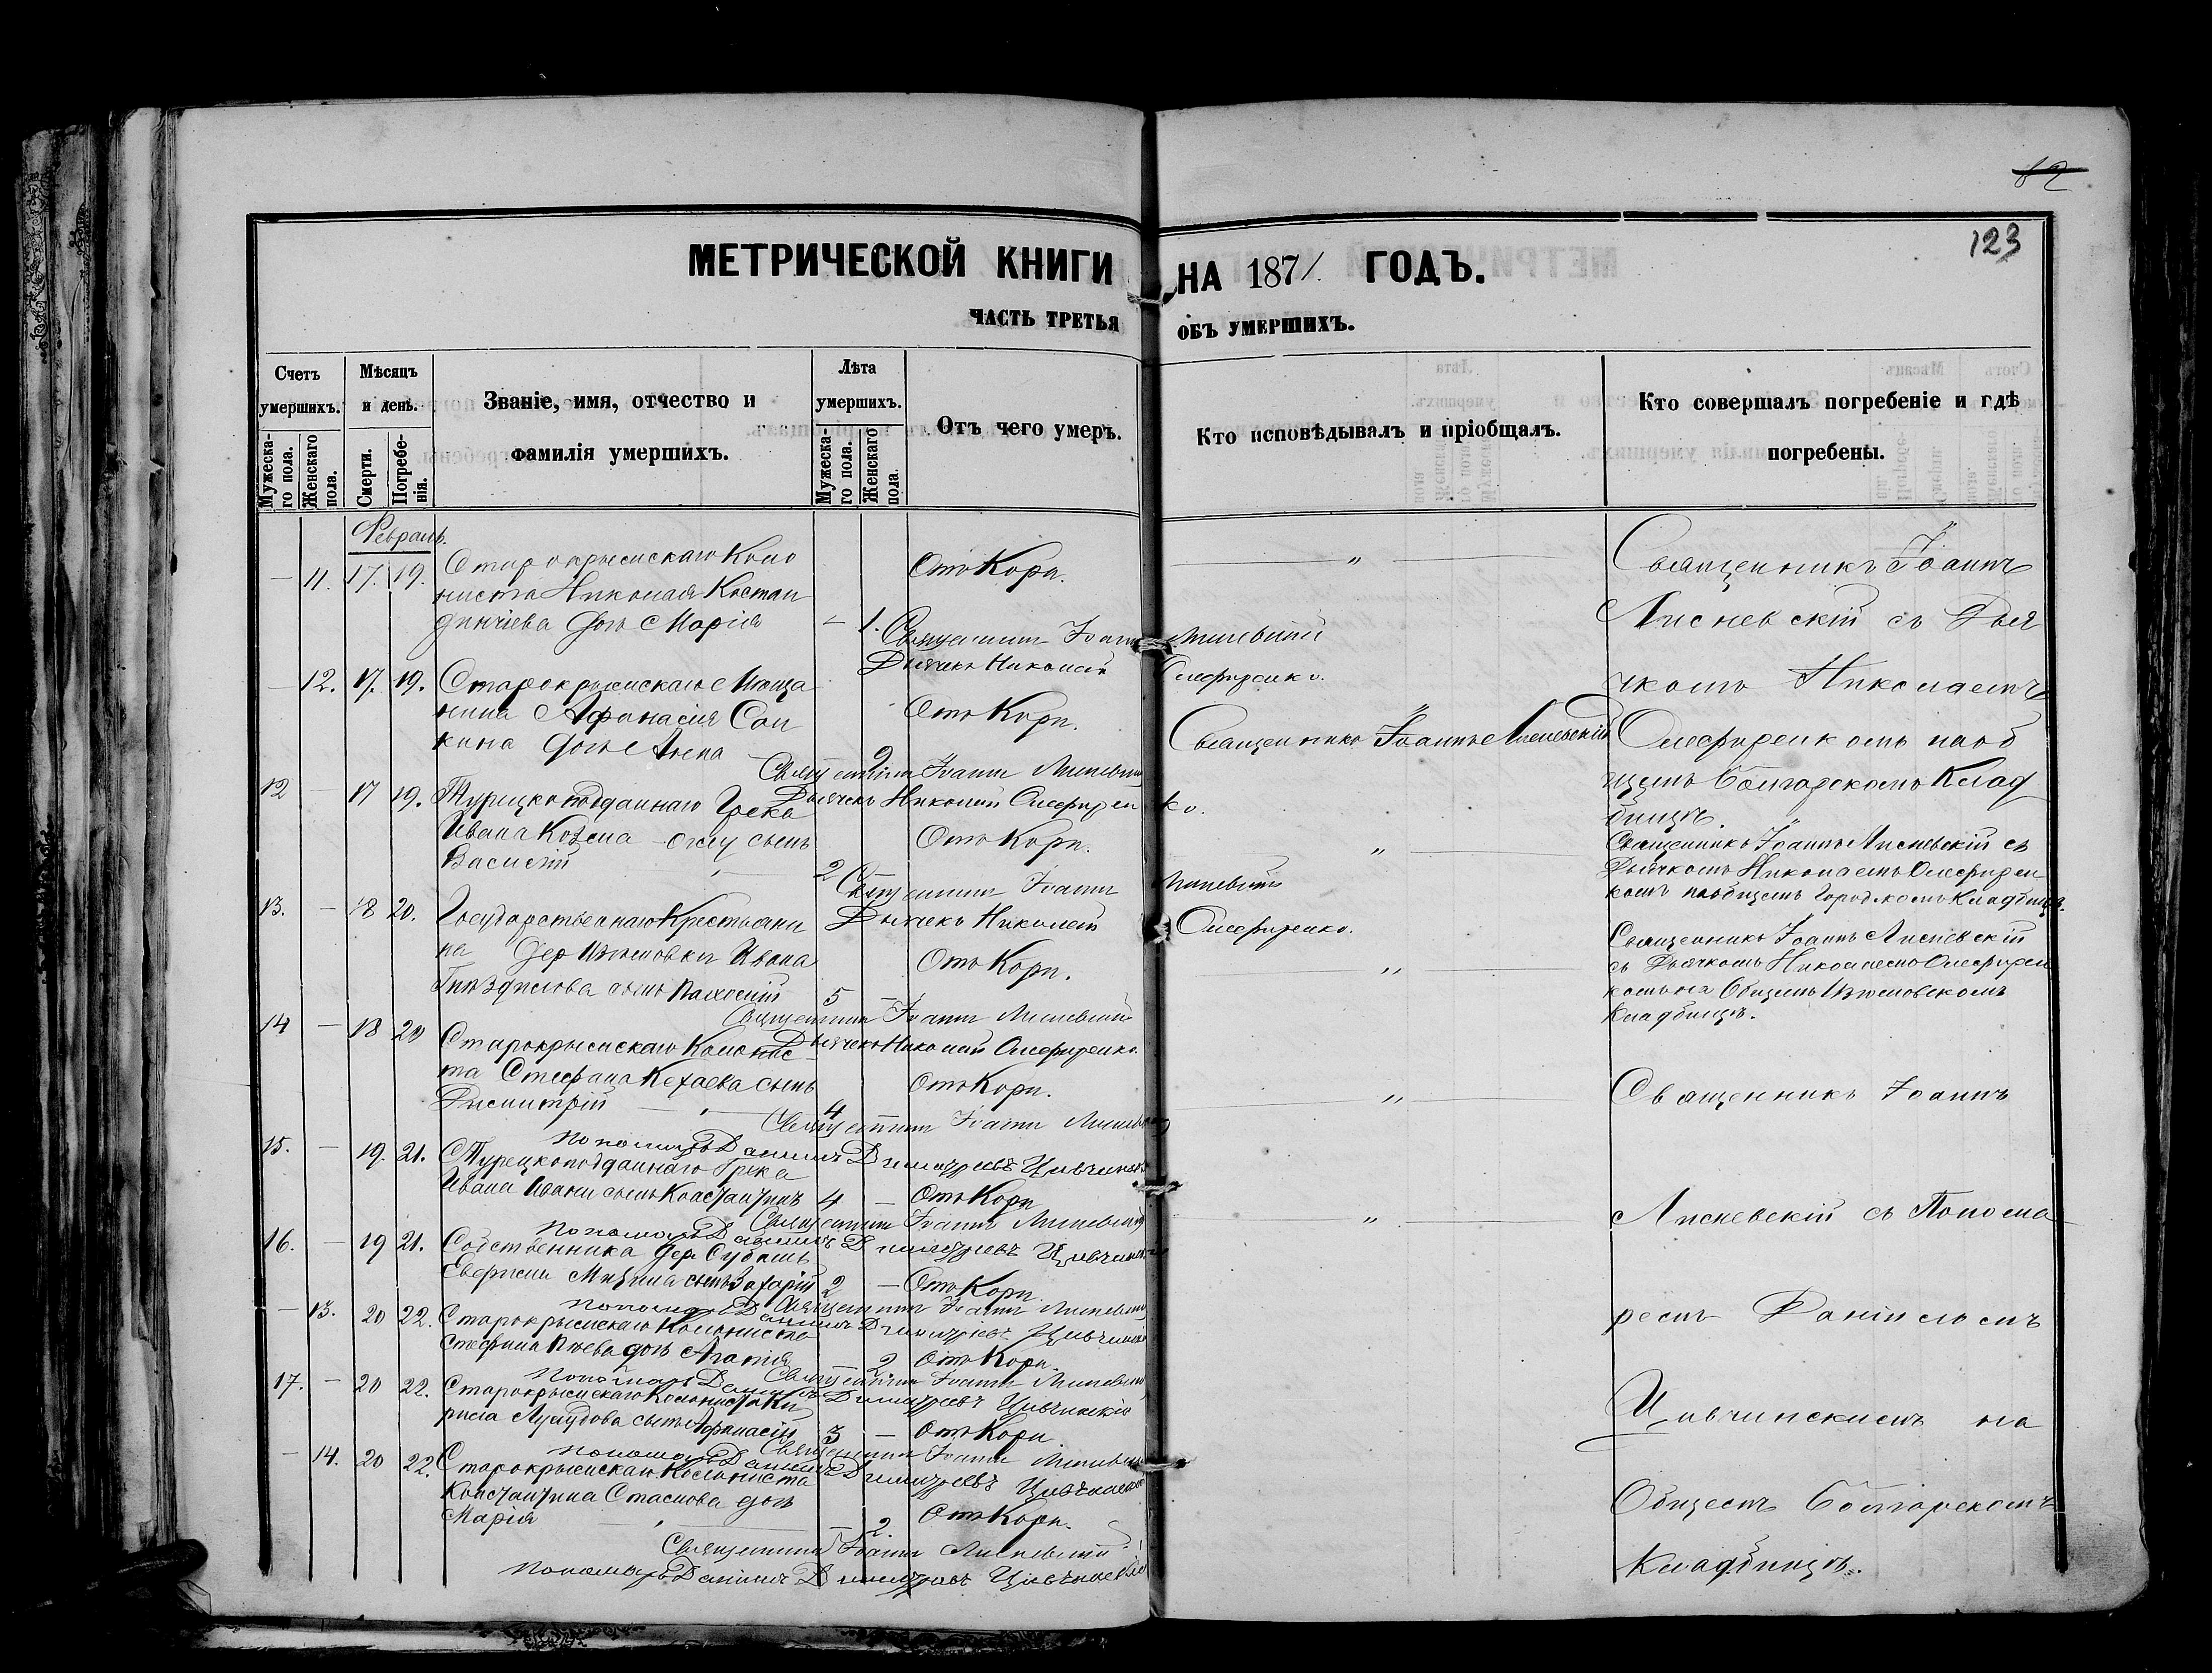 82
123
МЕТРИЧЕСКОЙ КНИГИ НА 1871 ГОДЪ.
ЧАСТЬ ТРЕТЬЯ ОБЪ УМЕРШИХЪ.
Счетъ умершихъ.
Мужескаго пола.
Женскаго пола.
Мѣсяцъ и день.
Смерти.
Погребенія.
Званіе, имя, отчество и
фамилія умершихъ.
Лѣта умершихъ.
Мужескаго пола.
Женскаго пола.
Отъ чего умеръ.
Кто исповѣдывалъ и пріобщалъ.
Кто совершалъ погребеніе и гдѣ
погребены.
Февраль.
— 11. 17. 19. Старокрымскаго Коло
ниста Николая Костан
динчіева дочь Марія — 1. Отъ Кори. "
Священникъ Іоаннъ Лисневскій
Дьячекъ Николай Олефиренко.
— 12. 17. 19. Старокрымскаго Мѣща
нина Афанасія Сон
кина дочь Анна — 2 Отъ Кори. "
Священникъ Іоаннъ Лисневскій
Священникъ Іоаннъ Лисневскій
Дьячекъ Николай Олефиренко.
Священникъ Іоаннъ
Лисневскій съ Дья
чкомъ Николаемъ
Олефиренкомъ на об
щемъ Болгарскомъ Клад
бищѣ.
12 — 17 19. Турецкоподданнаго Грека
Ивана Козма сынъ
Василій 2 Отъ Кори. "
Священникъ Іоаннъ Лисневскій
Дьячекъ Николай Олефиренко.
Священникъ Іоаннъ Лисневскій съ
Дьячкомъ Николаемъ Олефирен
комъ на общемъ Городскомъ Кладбищѣ.
13. — 18 20. Государственнаго Крестьяни
на дер Изюмовки Ивана
сынъ 5 — Отъ Кори. "
Священникъ Іоаннъ Лисневскій
Дьячекъ Николай Олефиренко.
Священникъ Іоаннъ Лисневскій
съ Дьячкомъ Николаемъ Олефирен
комъ на Общемъ Изюмовскомъ
Кладбищѣ.
14 — 18 20 Старокрымскаго Колонис
та Стефана Кехаева сынъ
Димитрій 4 — Отъ Кори. "
Священникъ Іоаннъ Лисневскій
Пономарь Даніилъ Димитріевъ Цивчинскій
15. — 19. 21. Турецкоподданнаго Грека
Ивана Ивани сынъ Константинъ 4 — Отъ Кори "
Священникъ Іоаннъ Лисневскій
Пономарь Даніилъ Димитріевъ Цивчинскій
16. — 19 21. Собственника дер Субашъ
сынъ Захарій 2 — Отъ Кори.
Священникъ Іоаннъ Лисневскій
Пономарь Даніилъ Димитріевъ Цивчинскій
— 13. 20 22. Старокрымскаго Колониста
Стефана дочь Агапія — 2 Отъ Кори.
Священникъ Іоаннъ Лисневскій
Пономарь Даніилъ Димитріевъ Цивчинскій
17. — 20 22. Старокрымскаго Колониста Ки
рила сынъ Афанасій 3 — Отъ Кори
Священникъ Іоаннъ Лисневскій
Пономарь Даніилъ Димитріевъ Цивчинскій
— 14. 20 22. Старокрымскаго Колониста
Константина Стасиова дочь
Марія — 2. Отъ Кори.
Священникъ Іоаннъ Лисневскій
Пономарь Даніилъ Димитріевъ Цивчинскій
Священникъ Іоаннъ
Лисневскій съ Понома
ремъ Даніиломъ
Цивчинскимъ на
Общемъ Болгарскомъ
Кладбищѣ.